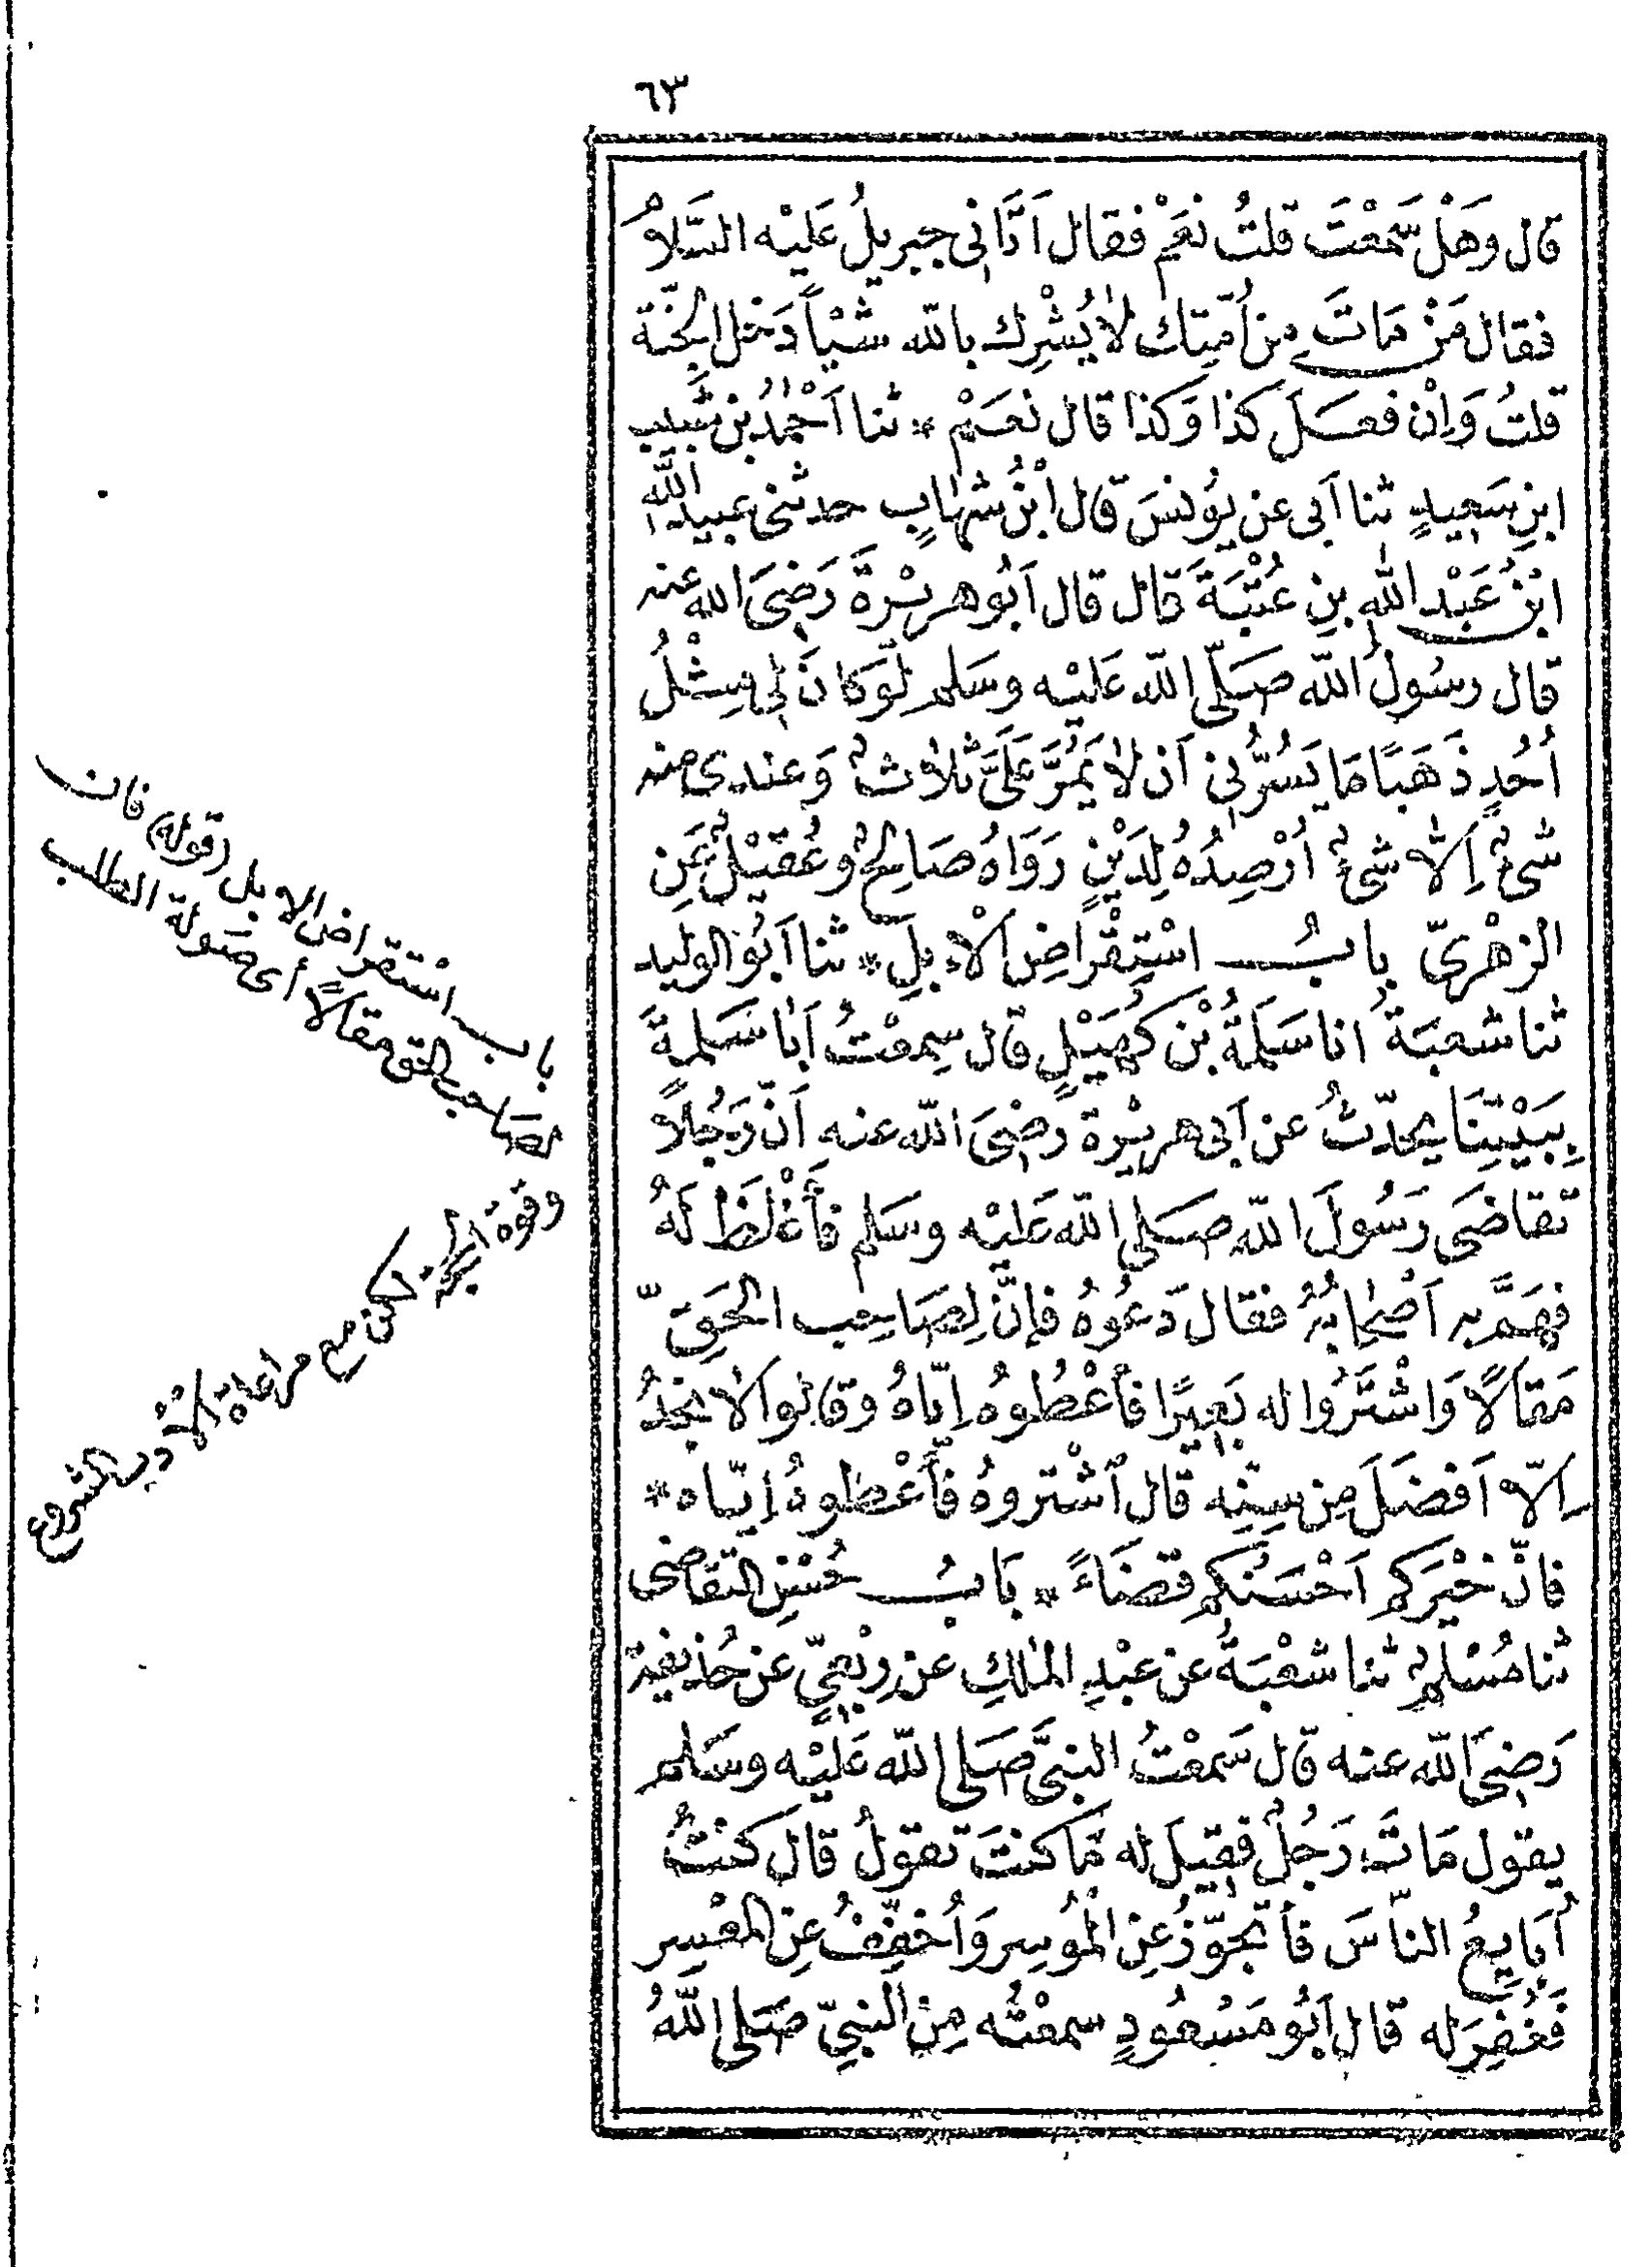 ٦٣
قال وَهَلْ سَمَعْتَ قلتُ نَعَمْ فقال اَتَانى جبريلُ عَلَيْه السَّلامُ
فقال مَنْ مَاتَ مِن اُمّتِك لاٰ يُشْرِك بالله شَيْأً دَخل الجنّة
قلتُ وَاِنْ فعَلَ كذا وَكذا قال نعَمْ * ثنا اَحْمدُ بن شَبيب
ابنِ سَعِيدٍ ثنا اَبى عن يوُنسَ قال ابْنُ شهابٍ حدثنى عبيد الله
ابْنُ عَبْد الله بنِ عُتْبَةَ قال قال اَبُو هريْرةَ رَضِىَ الله عنه
قال رسُولُ الله صَلّى الله عَليْه وسَلم لَوْ كانَ لِى مِثْلُ
اُحُدٍ ذَهَبًا مَا يَسُرُّنِى اَن لاٰ يَمُرَّ عَلَىَّ ثلاٰثٌ وَعندى منه
شَىءٌ اِلاّ شَىءٌ اُرْصِدُهُ لِدَيْنٍ رَوَاهُ صَالِحٌ وعُقَيْلٌ عَنِ
الزهْرىّ بابُ اسْتِقْراضِ الْاِبِلِ * ثنا اَبوُ الوليد
ثنا شعبَةُ انا سَلَمةُ بْن كُهَيْلٍ قال سِمعْتُ اَبا سَلمةَ
بِبَيْتِنَا يحدّثُ عن اَبى هريْرة رضِىَ الله عنه اَنّ رَجُلاً
تقاضَى رَسُولَ الله صَلى الله عَليْه وسَلم فأَغْلَظَ لهُ
فهَمَّ به اَصْحابُهُ فقال دَعُوهُ فإنّ لِصَاحِب الحَقّ
مَقالاً وَاشْتَرُوا له بَعِيرًا فأعْطُوهُ اِيّاهُ وقالوا لاٰ نجدُ
اِلاّ اَفضَلَ مِن سِنِّه قال اشْتروهُ فأَعْطوهُ اِيّاه *
فانّ خَيْرَكم اَحْسَنُكم قضَاءً * بَابُ حُسْنِ التقاضى
ثنا مُسْلمٌ ثنا شعْبَةُ عن عبْدِ الملكِ عن رِبْعِىٍّ عن حذيفة
رَضِىَ الله عنه قال سَمعْتُ النبىَّ صَلى الله عَليْه وسَلم
يقول مَاتَ رَجُلٌ فقِيلَ له مَا كنتَ تقولُ قال كنْتُ
اُبَايِعُ النّاسَ فأتجَوّزُ عنِ الْمُوسِر وَاُخفِّفُ عنِ المعْسِر
فَغُفِرَ له قال اَبُو مَسْعُودٍ سمعْتُه مِن النبىِّ صَلى اللهُ
باب اسْتقراض الابل (قوله) فان
لصاحب الحق مقالاً أى صَولة الطلب
وقوة الحجة لكن مع مراعاة الأدب المشروع